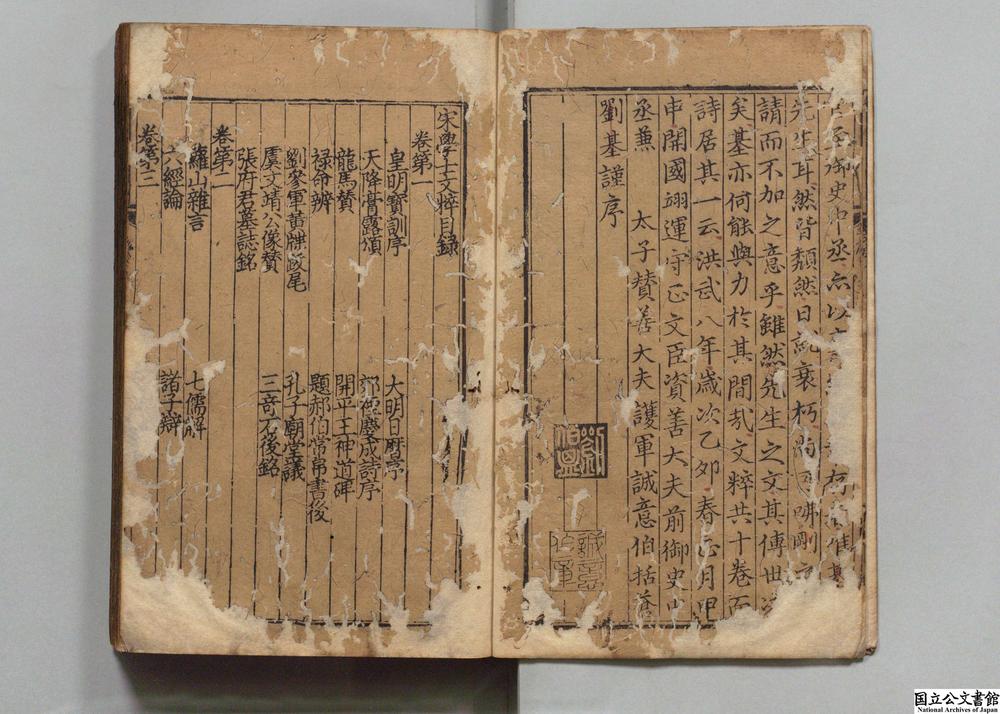 至御史中丞亦以
先生耳然皆頹然日就衰朽尚可咈剛
請而不加之意乎雖然先生之文其傳世
矣基亦何能與力於其間哉文粹共十卷而
詩居其一云洪武八年歲次乙夘春正月甲
申開國翊運守正文臣資善大夫前御史中
丞兼 太子贊善大夫護軍誠意伯括蒼
劉基謹序
劉伯温
誠意伯章
宋學士文粹目録
卷第一
皇明寶訓序 大明日曆序
天降膏露頌 郊禋慶成詩序
龍馬贊 開平王神道碑
禄命辨 題郝伯常帛書後
劉參軍黄牒跋尾 孔子廟堂議
虞文靖公像贊 三竒石後銘
張府君墓誌銘
卷第二
蘿山雜言 七儒解
六經論 諸子辯
卷第三
国立公文書館
National Archives of Japan